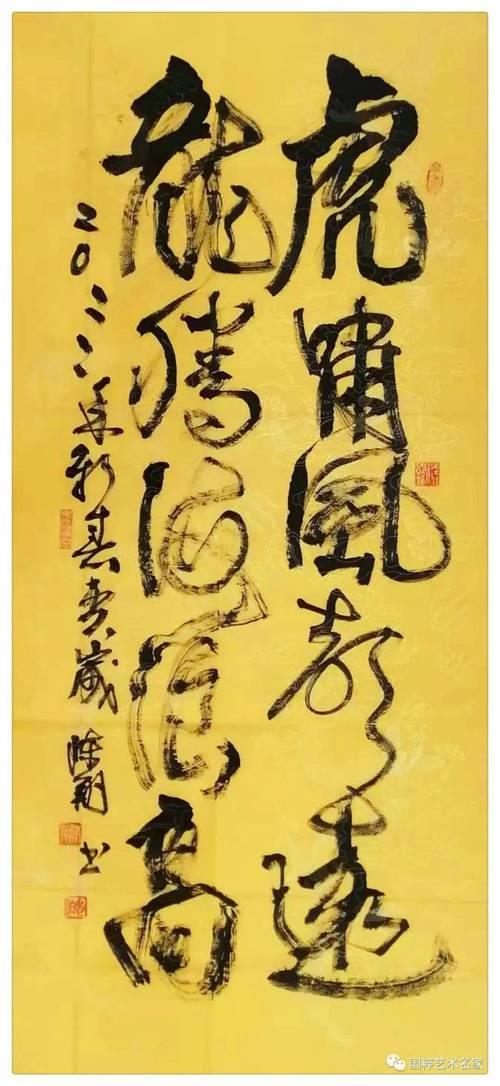 虎嘯風聲遠
龍騰海浪高
二〇二二年新春賀歲
書
国粹艺术名家